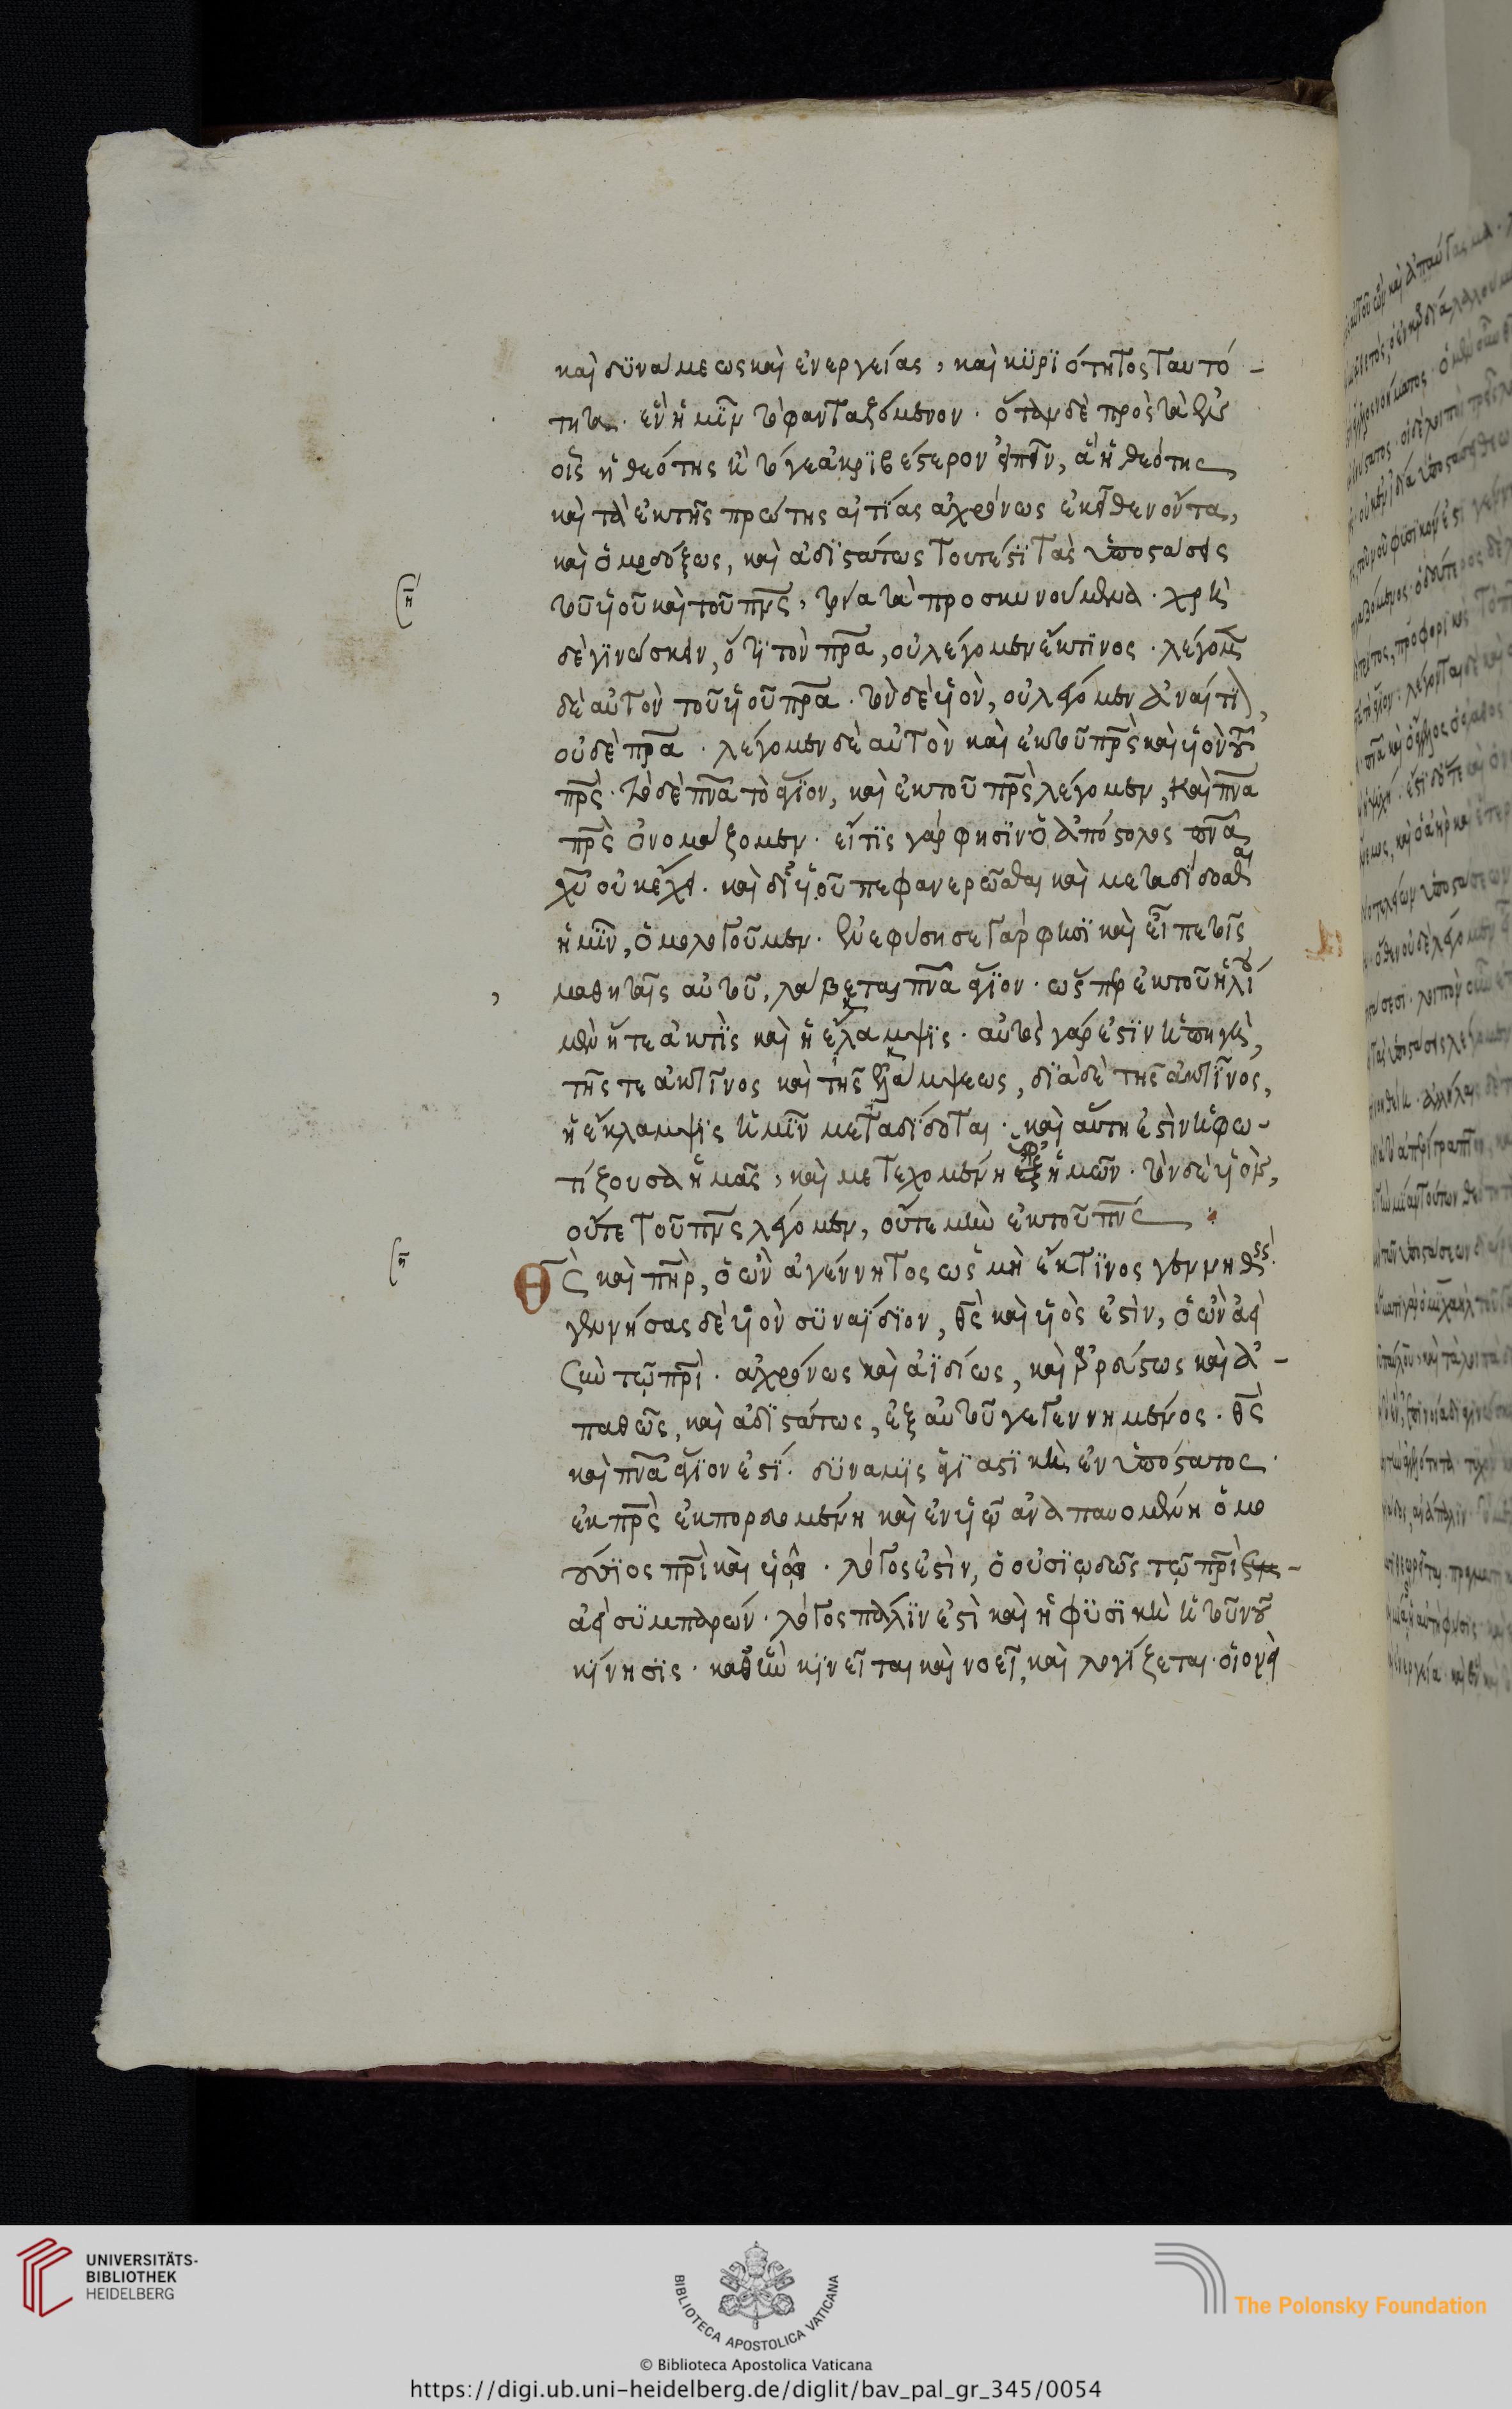 25
καὶ δυνάμεως καὶ ἐνεργείας, καὶ κυριότητος ταυτό-
τητα. ἓν ἡμῖν τὸ φανταζόμενον. ὅταν δὲ πρὸς τὰ ἐν
οἷς ἡ θεότης ἢ τό γε ἀκριβέστερον εἰπεῖν, ἃ ἡ θεότης
καὶ τὰ ἐκ τῆς πρώτης αἰτίας ἀχρόνως ἐκεῖθεν ὄντα,
καὶ ὁμοδόξως, καὶ ἀδιστάτως τουτέστι τὰς ὑποστάσεις
τοῦ υἱοῦ καὶ τοῦ πνς, τρία τὰ προσκυνούμενα. χρὴ
δὲ γινώσκειν, ὅτι τὸν πρα, οὐ λέγομεν ἔκ τινος. λέγομεν
δὲ αὐτὸν τοῦ υἱοῦ πρα. τὸν δὲ υἱὸν, οὐ λέγομεν ἀναίτιον,
οὐδὲ πρα. λέγομεν δὲ αὐτὸν καὶ ἐκ τοῦ πρς καὶ υἱὸν τοῦ
πρς. τὸ δὲ πνα τὸ ἅγιον, καὶ ἐκ τοῦ πρς λέγομεν, καὶ πνα
πρς ὀνομάζομεν. εἴ τις γάρ φησιν ὁ ἀπόστολος πνα
χυ οὐκ ἔχει. καὶ δι' υἱοῦ πεφανερῶσθαι καὶ μεταδίδοσθαι
ἡμῖν, ὁμολογοῦμεν. ἐνεφύσησε γάρ φησι καὶ εἶπε τοῖς
μαθηταῖς αὐτοῦ, λάβετε πνα ἅγιον. ὥσπερ ἐκ τοῦ ἡλίου
μὲν ἥ τε ἀκτὶς καὶ ἡ ἔκλαμψις. αὐτὸς γάρ ἐστιν ἡ πηγὴ,
τῆς τε ἀκτῖνος καὶ τῆς ἐκλάμψεως, διὰ δὲ τῆς ἀκτῖνος,
ἡ ἔκλαμψις ἡμῖν μεταδίδοται. καὶ αὕτη ἐστὶν ἡ φω-
τίζουσα ἡμᾶς, καὶ μετεχομένη ἡμῶν. τὸν δὲ υἱὸν,
οὔτε τοῦ πνς λέγομεν, οὔτε μὴν ἐκ τοῦ πνς
Θς καὶ πηρ, ὁ ὢν ἀγέννητος ὡς μὴ ἔκ τινος γεννηθείς.
γεννήσας δὲ υἱὸν συναΐδιον, θς καὶ υἱός ἐστιν, ὁ ὢν ἀεὶ
σὺν τῷ πρι. ἀχρόνως καὶ ἀϊδίως, καὶ ἀρεύστως καὶ ἀ-
παθῶς, καὶ ἀδιστάτως, ἐξ αὐτοῦ γεγεννημένος. θς
καὶ πνα ἅγιόν ἐστι. δύναμις ἁγιαστικὴ ἐνυπόστατος.
ἐκ πρς ἐκπορευομένη καὶ ἐν υἱῷ ἀναπαυομένη ὁμο
ούσιος πρι καὶ υἱῷ. λόγος ἐστὶν, ὁ οὐσιωδῶς τῷ πρι
ἀεὶ συμπαρών. λόγος πάλιν ἐστὶ καὶ ἡ φυσικὴ ἡ τοῦ νοῦ
κίνησις. καθ' ἣν κινεῖται καὶ νοεῖ, καὶ λογίζεται. οἱονεὶ
UNIVERSITÄTS-
BIBLIOTHEK
HEIDELBERG
BIBLIOTECA APOSTOLICA VATICANA
The Polonsky Foundation
© Biblioteca Apostolica Vaticana
https://digi.ub.uni-heidelberg.de/diglit/bav_pal_gr_345/0054